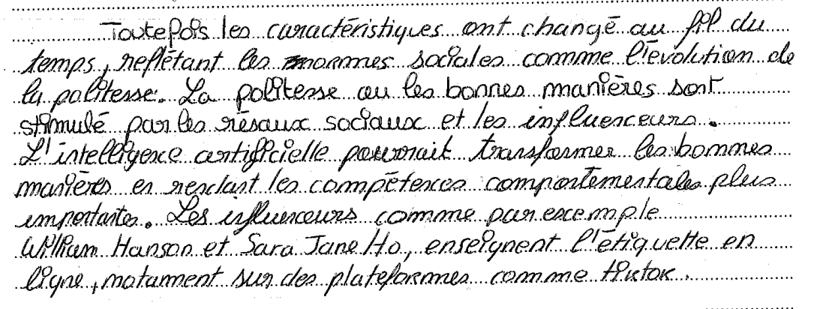 Toutefois les caractéristiques ont changé au fil du
temps, reflétant les normes sociales comme l'évolution de
la politesse. La politesse ou les bonnes manières sont
stimulé par les résaux sociaux et les influenceurs.
L'intelligence artificielle pourrait transformer les bonnes
manières en rendant les compétences comportementales plus
importantes. Les influenceurs comme par excemple
William Hanson et Sara Jane Ho, enseignent l'étiquette en
ligne, notament sur des plateformes comme tiktok.